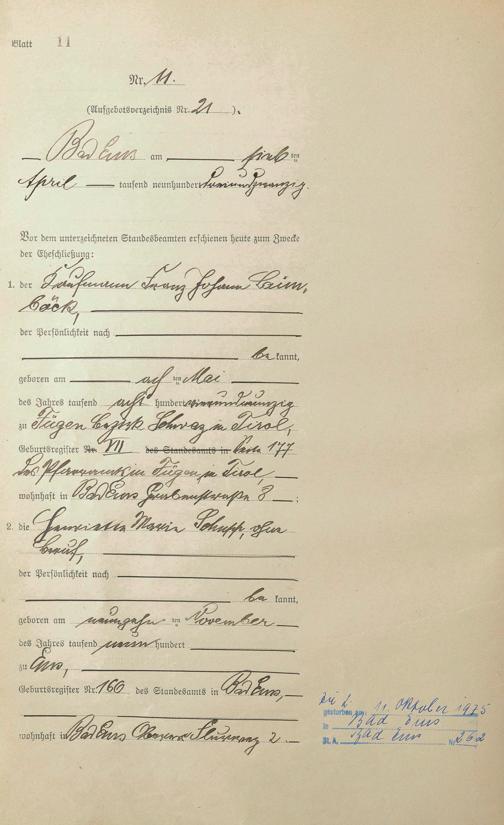 Blatt 11
Nr. 11.
(Aufgebotsverzeichnis Nr. 21 ).
Bad Ems am
April tausend neunhundert
Vor dem unterzeichneten Standesbeamten erschienen heute zum Zwecke
der Eheschließung:
1. der Kaufmann Franz Johann Leim-
böck,
der Persönlichkeit nach
be kannt,
geboren am ten Mai
des Jahres tausend acht hundert
zu Fügen Bezirk Schwaz in Tirol,
Geburtsregister Nr. VII des Standesamts in Seite 177
des Pfarramts in Fügen, in Tirol,
wohnhaft in Bad Ems Grabenstraße 8 ;
2. die Henriette Marie Schupp, ohne
Beruf,
der Persönlichkeit nach
be kannt,
geboren am neunzehn ten November
des Jahres tausend neun hundert
zu Ems,
Geburtsregister Nr. 166 des Standesamts in Bad Ems,
wohnhaft in Bad Ems Oberer 2.
gestorben am 11. Oktober 1975
in Bad Ems
St. A. Bad Ems Nr. 262